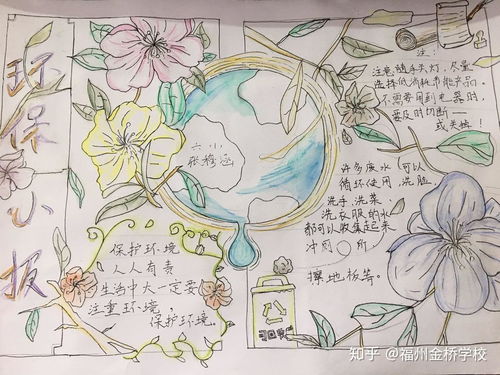 环保小报
六、小
注:
注意随手关灯,尽量
选择低消耗节能产品。
不需要用到电器时,
要及时切断——
或关掉!
许多废水可以
循环使用,洗脸、
洗手、洗菜、
洗衣服的水
都可以收集起来
冲厕○所,
擦地板等。
保护环境
人人有责
生活中大一定要
注重环境
保护环境。
可回收
知乎 @福州金桥学校